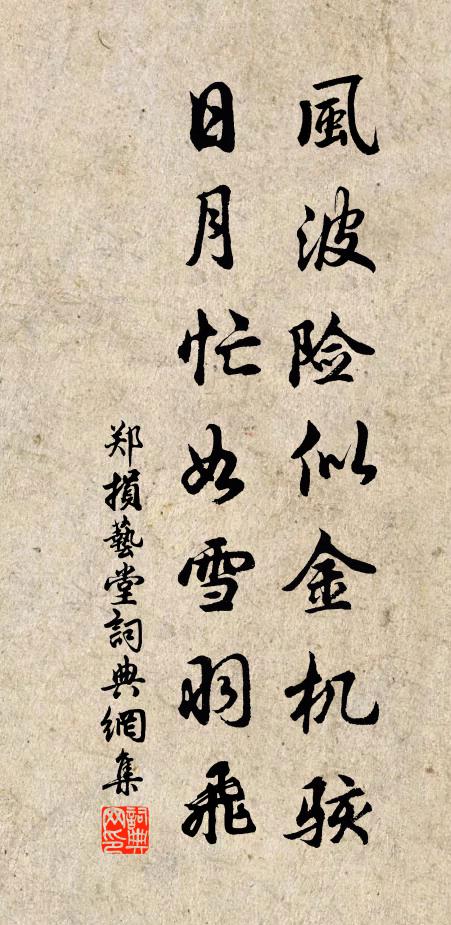 風波险似金机骇
日月忙如雪羽飛
郑損藝堂詞典網集
詞典網印